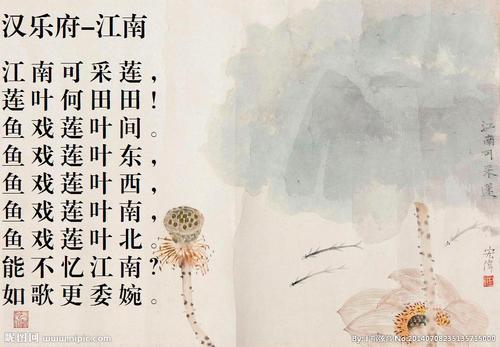 汉乐府-江南
江南可采莲，
莲叶何田田！
鱼戏莲叶间。
鱼戏莲叶东，
鱼戏莲叶西，
鱼戏莲叶南，
鱼戏莲叶北。
能不忆江南？
如歌更委婉。
江南可采莲
昵图网 www.nipic.com